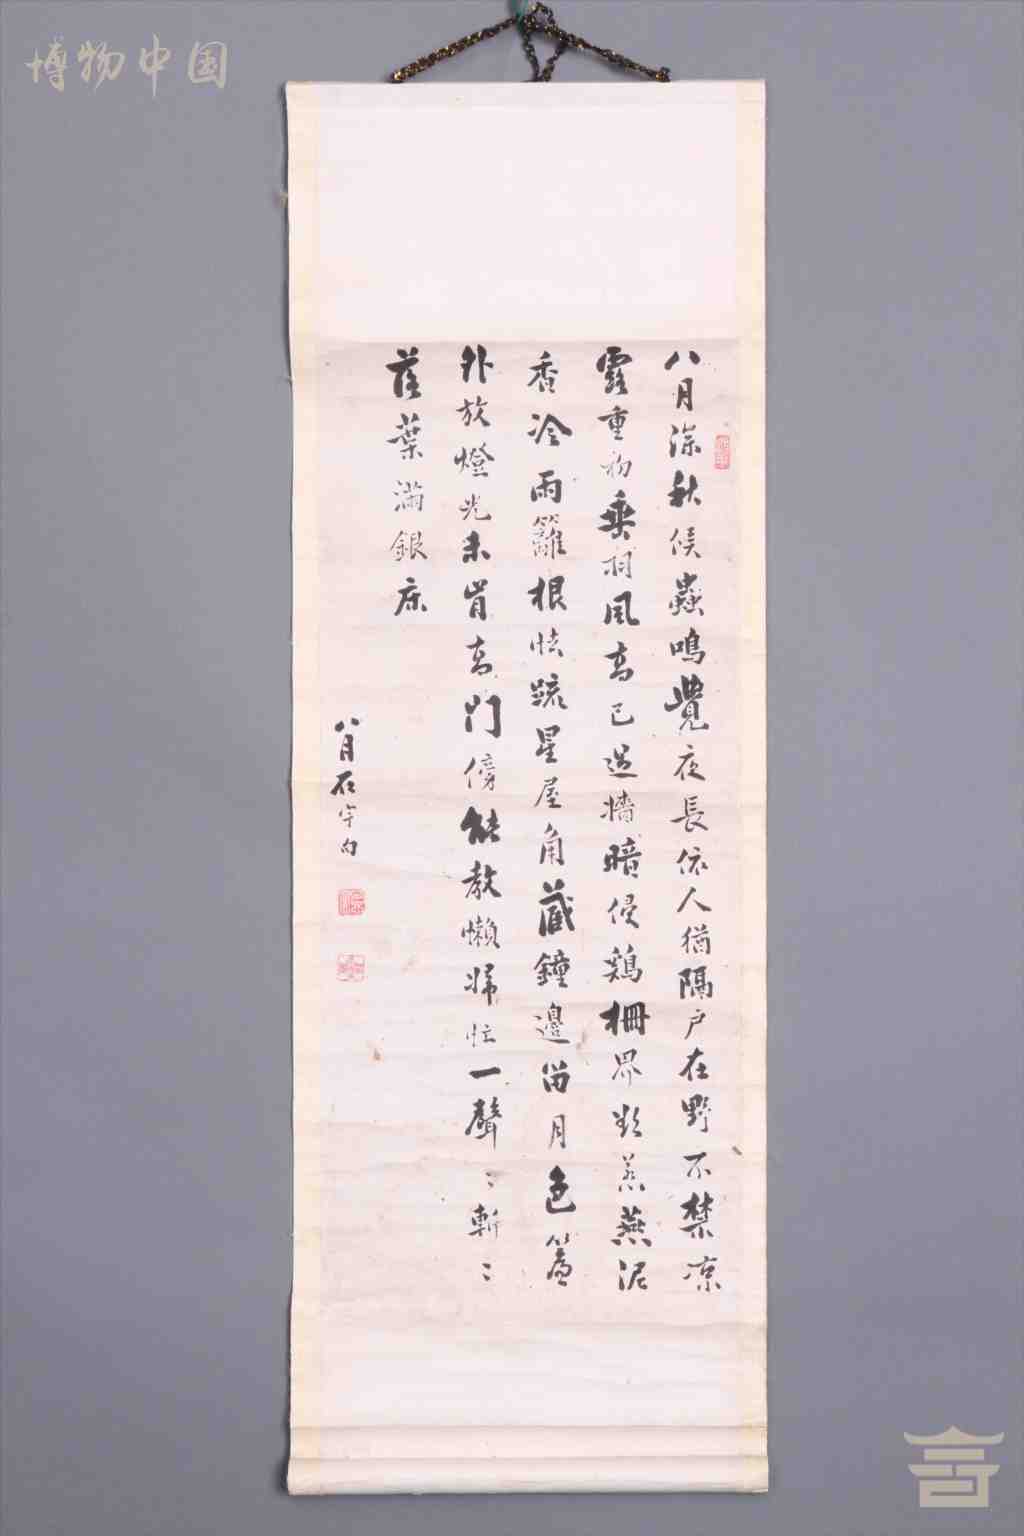 博物中国
八月深秋候蟲鳴覺夜長依人猶隔户在野不禁凉
露重初垂桐風高已過墻暗侵鷄栅界燕泥
香冷雨籬根怯疏星屋角藏鐘邊留月色簷
外放燈光未肯高門傍能教懶婦忙一聲〻漸〻
落葉滿銀床
八月石宇